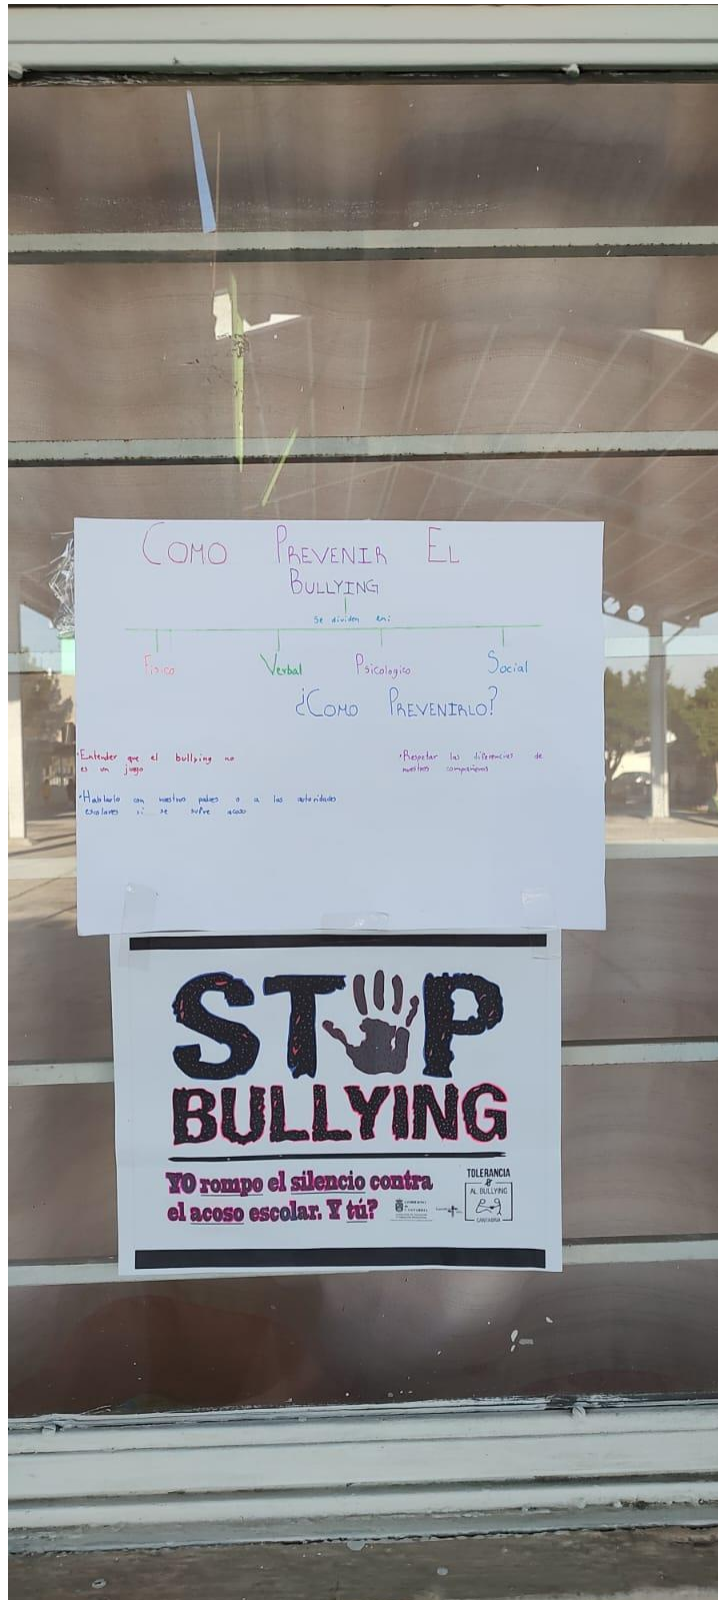 COMO PREVENIR EL
BULLYING
Se dividen en:
Físico Verbal Psicologico Social
¿COMO PREVENIRLO?
•Entender que el bullying no
es un juego
•Respetar las diferencias de
nuestros compañeros
•Hablarlo con nuestros padres o a las autoridades
escolares si se sufre acoso
STOP
BULLYING
YO rompo el silencio contra
el acoso escolar. Y tú?
TOLERANCIA
AL BULLYING
CANTABRIA